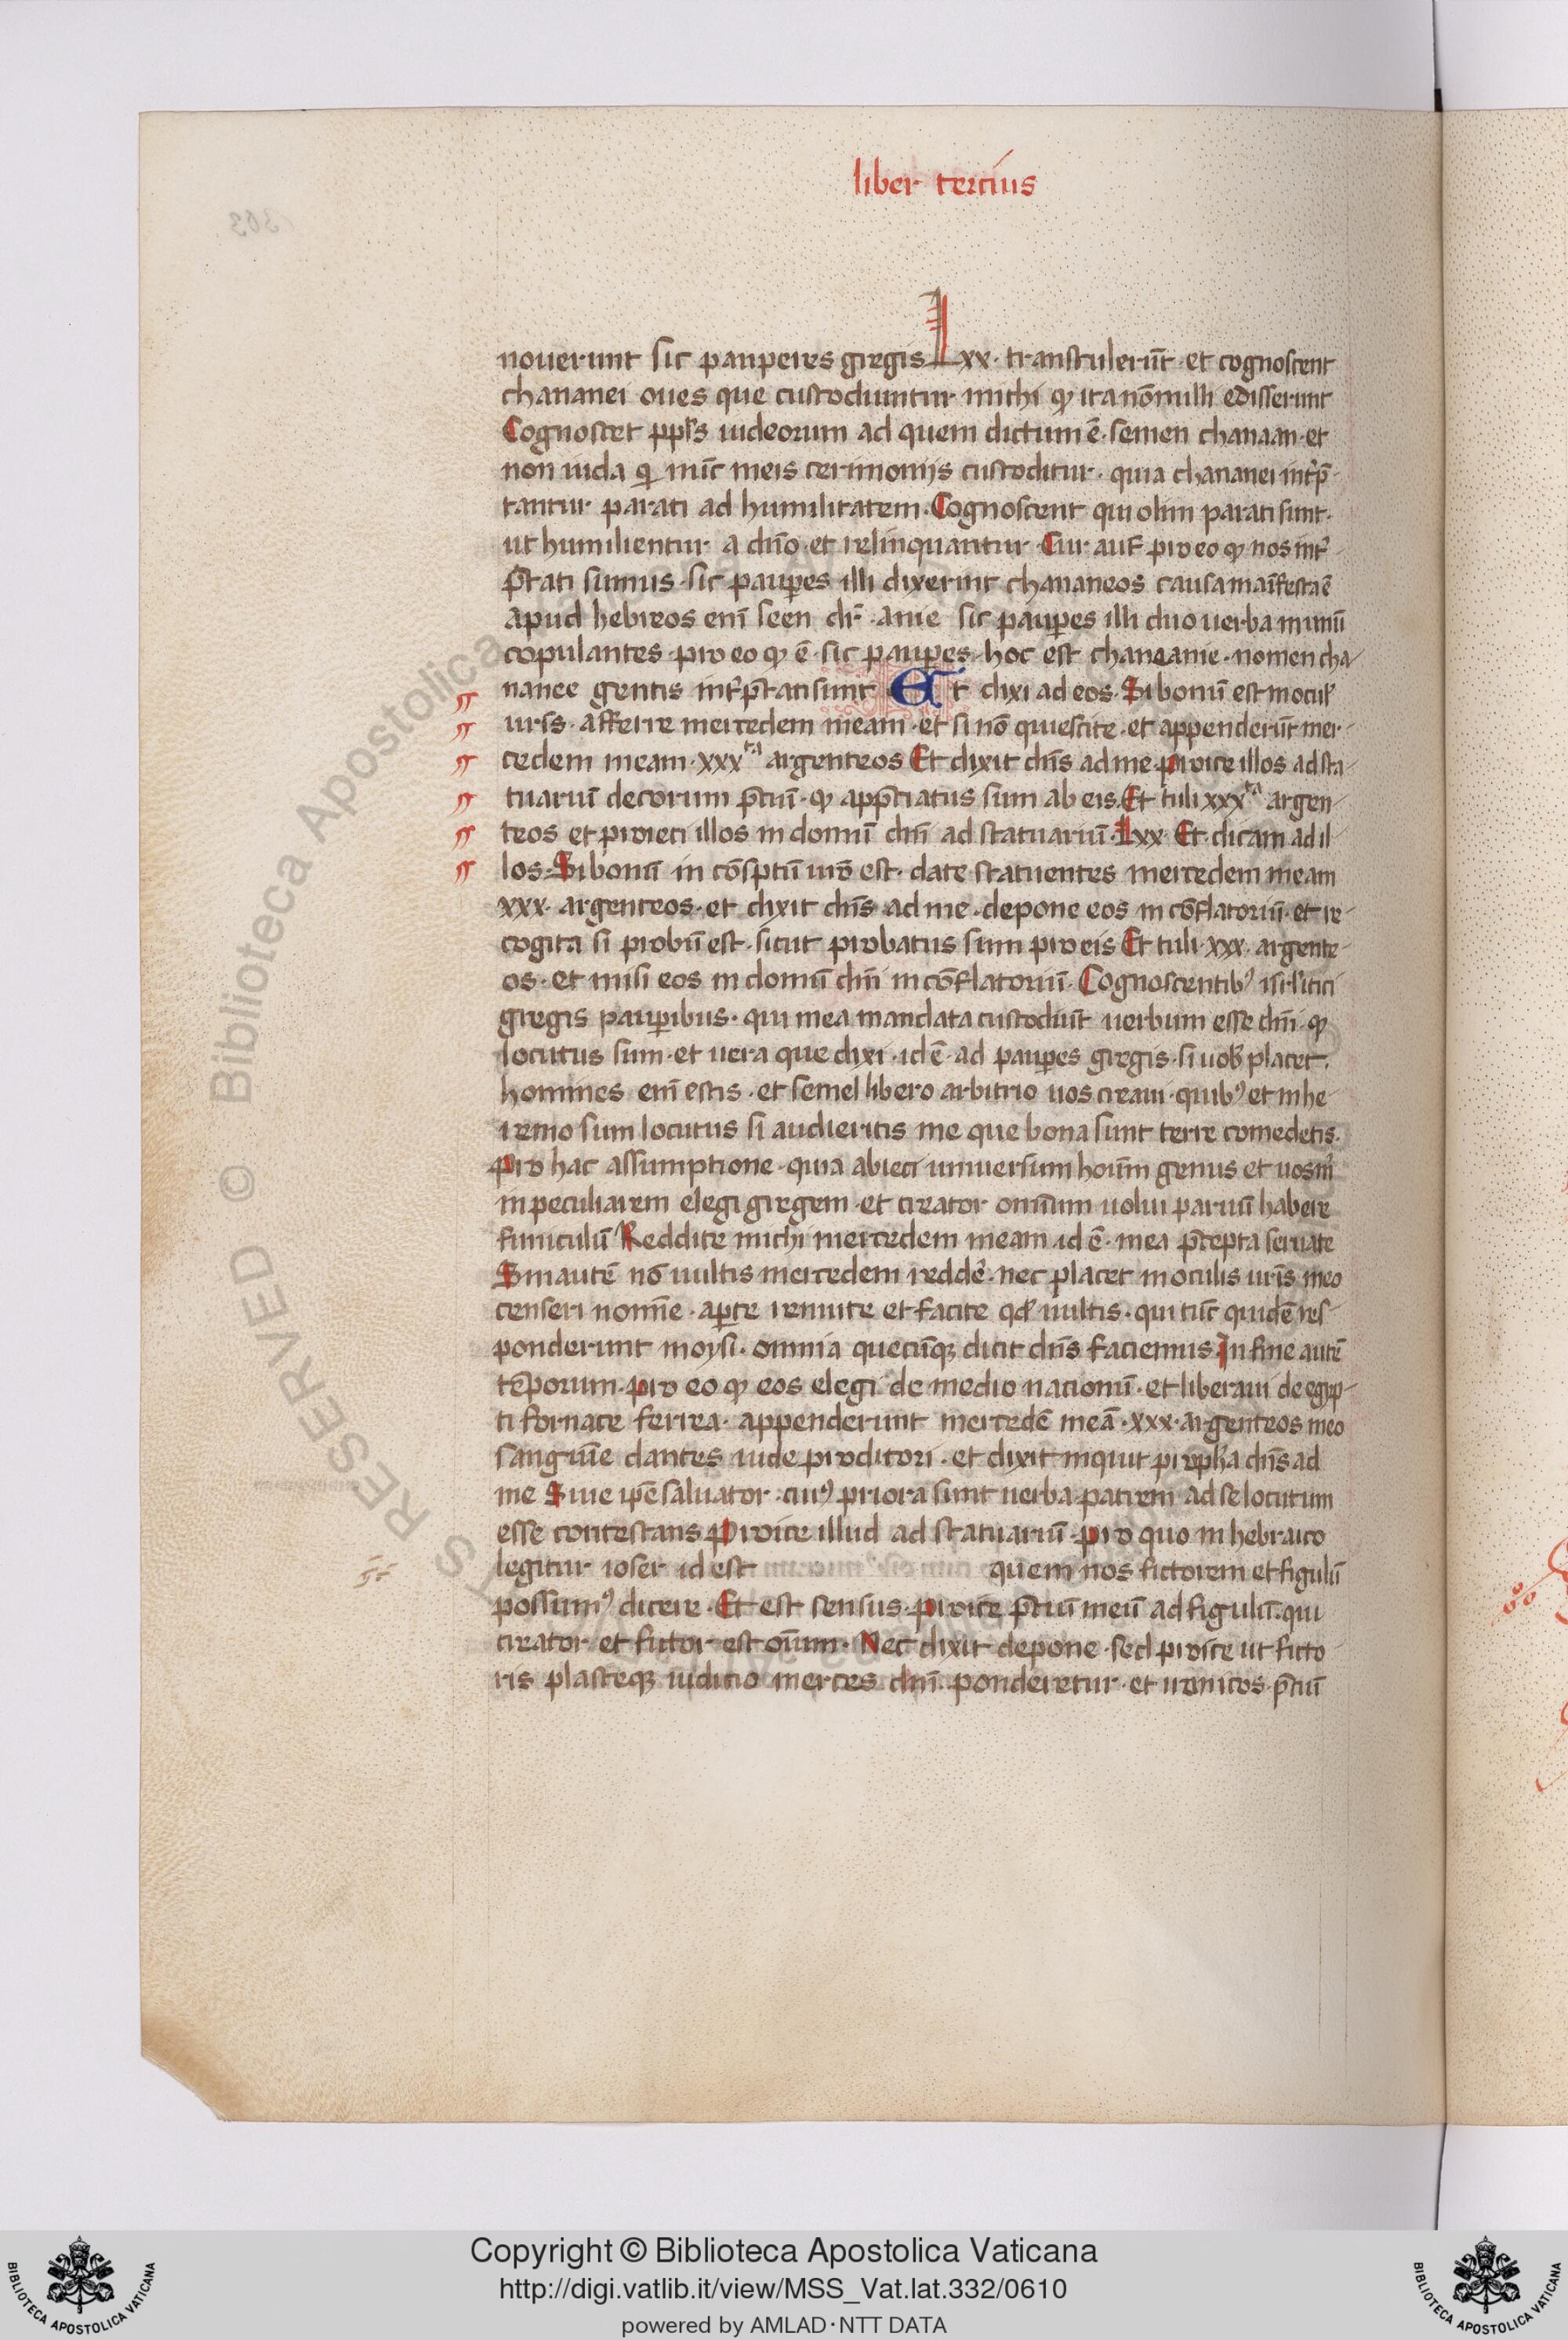 liber tercius
nouerunt sic pauperes gregis Lxx. transtulerūt et cognoscent
chananei oues que custodiuntur michi ꝙ ita nōnulli edisserunt
Cognoscet ppl's iudeorum ad quem dictum ē. semen chanaan. et
non iuda qͥ nūc meis cerimonijs custoditur. quia chananei int'p̄
tantur parati ad humilitatem. Cognoscent qui olim parati sunt.
ut humilientur a dn̄o. et relinquantur. Cur aut̄ pro eo ꝙ nos int'
p̄tati sumus. sic paup̱es illi dixerint chananeos causa māifesta ē
apud hebreos enī seen dr̄. anie sic paup̱es illi duo uerba in unū
copulantes. pro eo ꝙ ē. sic paup̱es. hoc est chaneanie. nomen cha
nanee gentis int'p̄tati sunt Et dixi ad eos. Si bonū est in ocul'
ur̄is. afferre mercedem meam. et si nō quiescite. et appenderūt mer
cedem meam. xxxta argenteos Et dixit dn̄s ad me. proice illos ad sta
tuariū decorum p̄ciū. ꝙ app̄ciatus sum ab eis. Et tuli xxxta argen
teos et proieci illos in domū dn̄i ad statuariū. Lxx. Et dicam ad il
los. Si bonū in cōspctū ur̄o est. date statuentes mercedem meam
xxx. argenteos. et dixit dn̄s ad me. depone eos in cōflatoriū. et re
cogita si probū est. sicut probatus sum pro eis Et tuli. xxx. argente
os. et misi eos in domū dn̄i in cōflatoriū. Cognoscentibꝰ
gregis paup̱ibus. qui mea mandata custodiūt uerbum esse dn̄i. ꝙ
locutus sum. et uera que dixi. id ē. ad paup̱es gregis. si uob' placet.
homines enī estis. et semel libero arbitrio uos creaui. quibꝰ et in he
remo sum locutus si audieritis me que bona sunt terre comedetis.
Pro hac assumptione. quia abieci uniuersum hoīum genus et uos m̄
in peculiarem elegi gregem. et creator omīum uolui paruū habere
funiculū Reddite michi mercedem meam. id ē. mea p̄cepta seruate
Sin autē nō uultis mercedem redde'. nec placet in oculis ur̄is meo
censeri nomīe. ap̱te renuite et facite qd' uultis. qui tūc quidē res
ponderunt moysi. omnia quecūqꝫ dicit dn̄s faciemus In fine autē
tēporum. pro eo ꝙ eos elegi de medio nationū. et liberaui de egyp
ti fornace ferrea. appenderunt mercedē meā. xxx. argenteos meo
sanguīe dantes iude proditori. et dixit inquit proph'a dn̄s ad
me Siue ip̄e saluator. cuiꝰ priora sunt uerba. patrem ad se locutum
esse contestans Proice illud ad statuariū. pro quo in hebraico
legitur ioser id est quem nos fictorem et figulū
possumꝰ dicere. Et est sensus. proice p̄ciū meū ad figulū. qui
creator et fictor est oīum. Nec dixit depone. sed proice ut ficto
ris plasteqꝫ iudicio merces dn̄i. ponderetur. et uronicos. p̄ciū
RESERVED © Biblioteca Apostolica
Copyright © Biblioteca Apostolica Vaticana
http://digi.vatlib.it/view/MSS_Vat.lat.332/0610
powered by AMLAD·NTT DATA
BIBLIOTECA APOSTOLICA VATICANA
BIBLIOTECA APOSTOLICA VATICANA